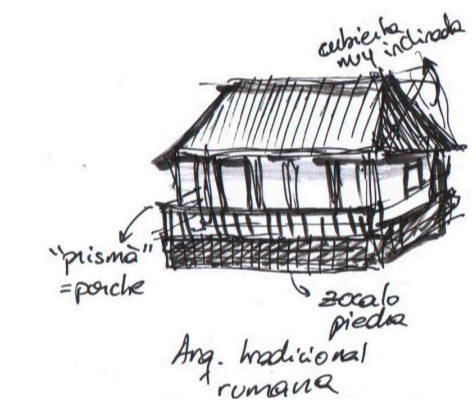 cubierta
muy inclinada
"prismà"
=porche
zocalo
piedra
Arq. tradicional
rumana